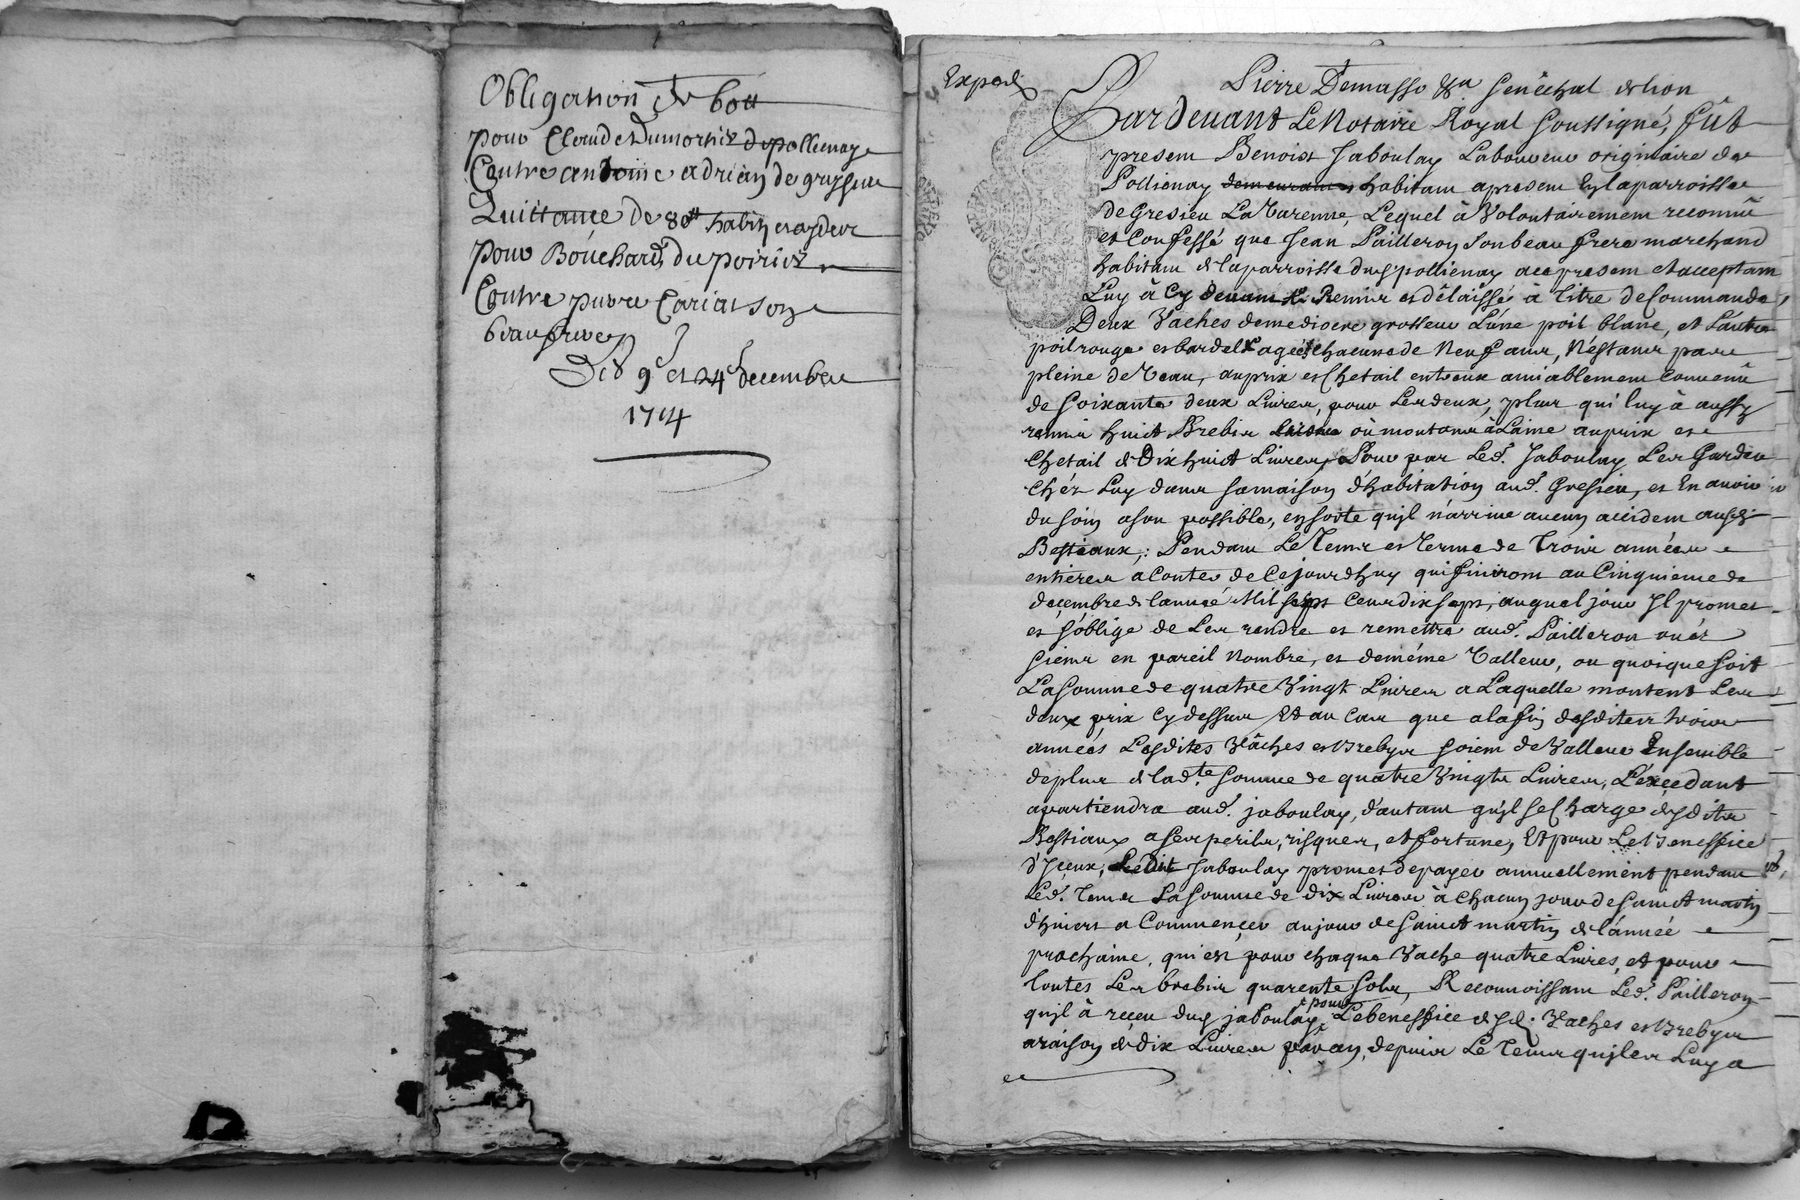 Obligation de 60tt
pour Claude Dumortier de pollienay
Contre antoine adrian de grezieu
Quittance de 80tt habitz et ayder
pour Bouchard du poirier
Contre pierre Cariat son
beaufrere
Des 9e et 24e decembre
1714
Expedié
Pierre Demasso &a senechal de lion
Pardevant Le Notaire Royal soussigné, fût
present Benoist Jaboulay Laboureur originaire de
Pollienay demeurant habitant apresent En laparroisse
de Gresieu La Varenne, Lequel à Volontairement reconnû
et Confessé que Jean Pailleron son beau frere marchand
habitant de laparroisse dud pollienay acepresent et acceptant
Luy à Cy devant Remis et délaissé à titre de Commande,
Deux Vaches de mediocre grosseur L'une poil blanc, et L'autre
poil rouge et bardelé agées chacune de Neuf ans, N'estans pas
pleine de Veau, au prix et Chetail entreux amiablement Convenû
de soixante deux Livres, pour Les deux, plus qu'i luy à aussy
remis huit Brebis ou moutons à Laine au prix et
Chetail de Dix huict Livres, Pour par Led. Jaboulay Les Garder
Chéz Luy dans samaison d'habitation aud. Gresieu, et En avoir
du soin a son possible, en sorte qu'il n'arrive aucun accident ausd
Bestiaux, Pendant Le Tems et terme de Trois années
entieres a Conter de Cejourdhuy qui finiront au Cinquieme de
decembre de lannée Mil sept Cens dix sept, auquel jour Il promet
et s'oblige de Les rendre et remettre aud. Pailleron ou és
siens en pareil Nombre, et de méme Valleur, ou quoique soit
La somme de quatre Vingt Livres a Laquelle montent Les
deux prix Cy dessus Et au Cas que a la fin desdites trois
années Lesdites Vâches et Brebys soient de Valleur Ensemble
de plus de lad.te somme de quatre Vingts Livres, L'excedant
apartiendra aud. jaboulay, d'autant qu'il se Charge desdits
Bestiaux a ses perils, risques, et fortune, Et pour Le Benefice
d'Iceux, Ledit Jaboulay promet de payer annuellement pendant
Led. Tems La somme de dix Livres à Chacun jour de sainct martin
d'hivert a Commencer au jour de sainct martin de l'année
prochaine, qui est pour chaque Vache quatre Livres, et pour
toutes Les brebis quarente sols, Reconnoissant Led. Pailleron
qu'il à receu dud jaboulay pour Le benefice desd. Vaches et Brebys
a raison de dix Livres par an, depuis Le Tems qu'il les Luy a